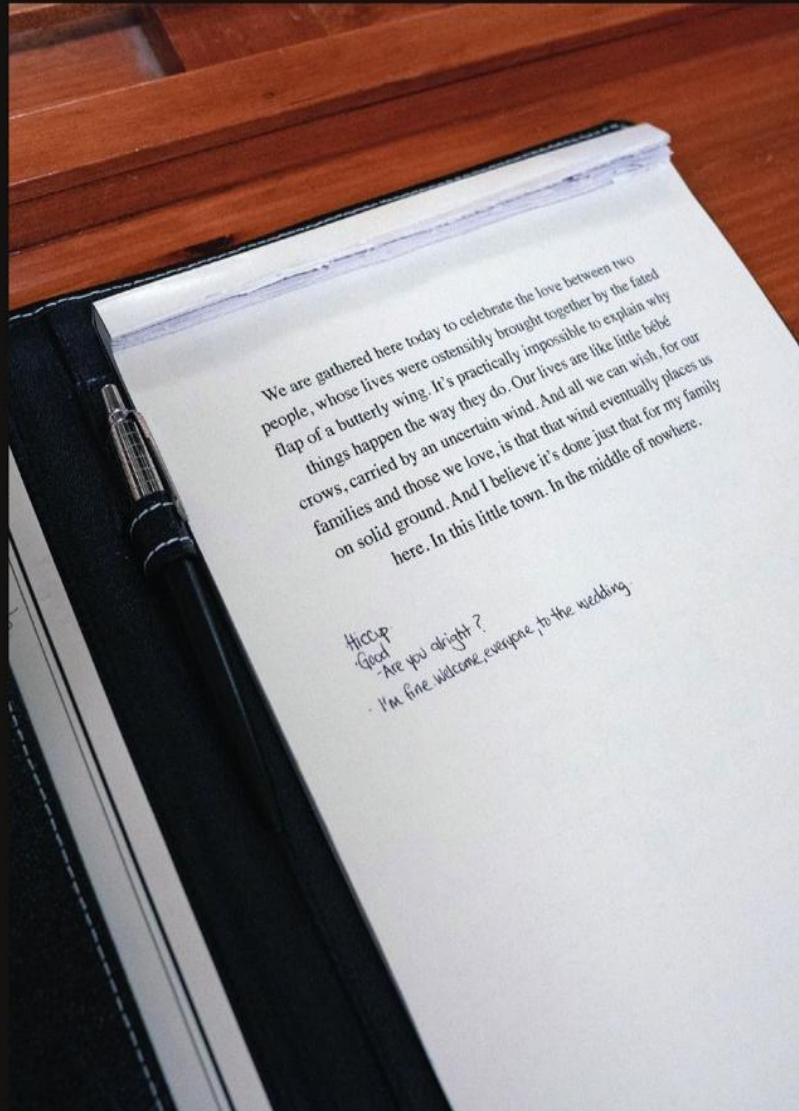 We are gathered here today to celebrate the love between two
people, whose lives were ostensibly brought together by the fated
flap of a butterly wing. It's practically impossible to explain why
things happen the way they do. Our lives are like little bébé
crows, carried by an uncertain wind. And all we can wish, for our
families and those we love, is that that wind eventually places us
on solid ground. And I believe it's done just that for my family
here. In this little town. In the middle of nowhere.
Hiccup.
·Good
-Are you alright?
· I'm fine welcome, everyone, to the wedding.